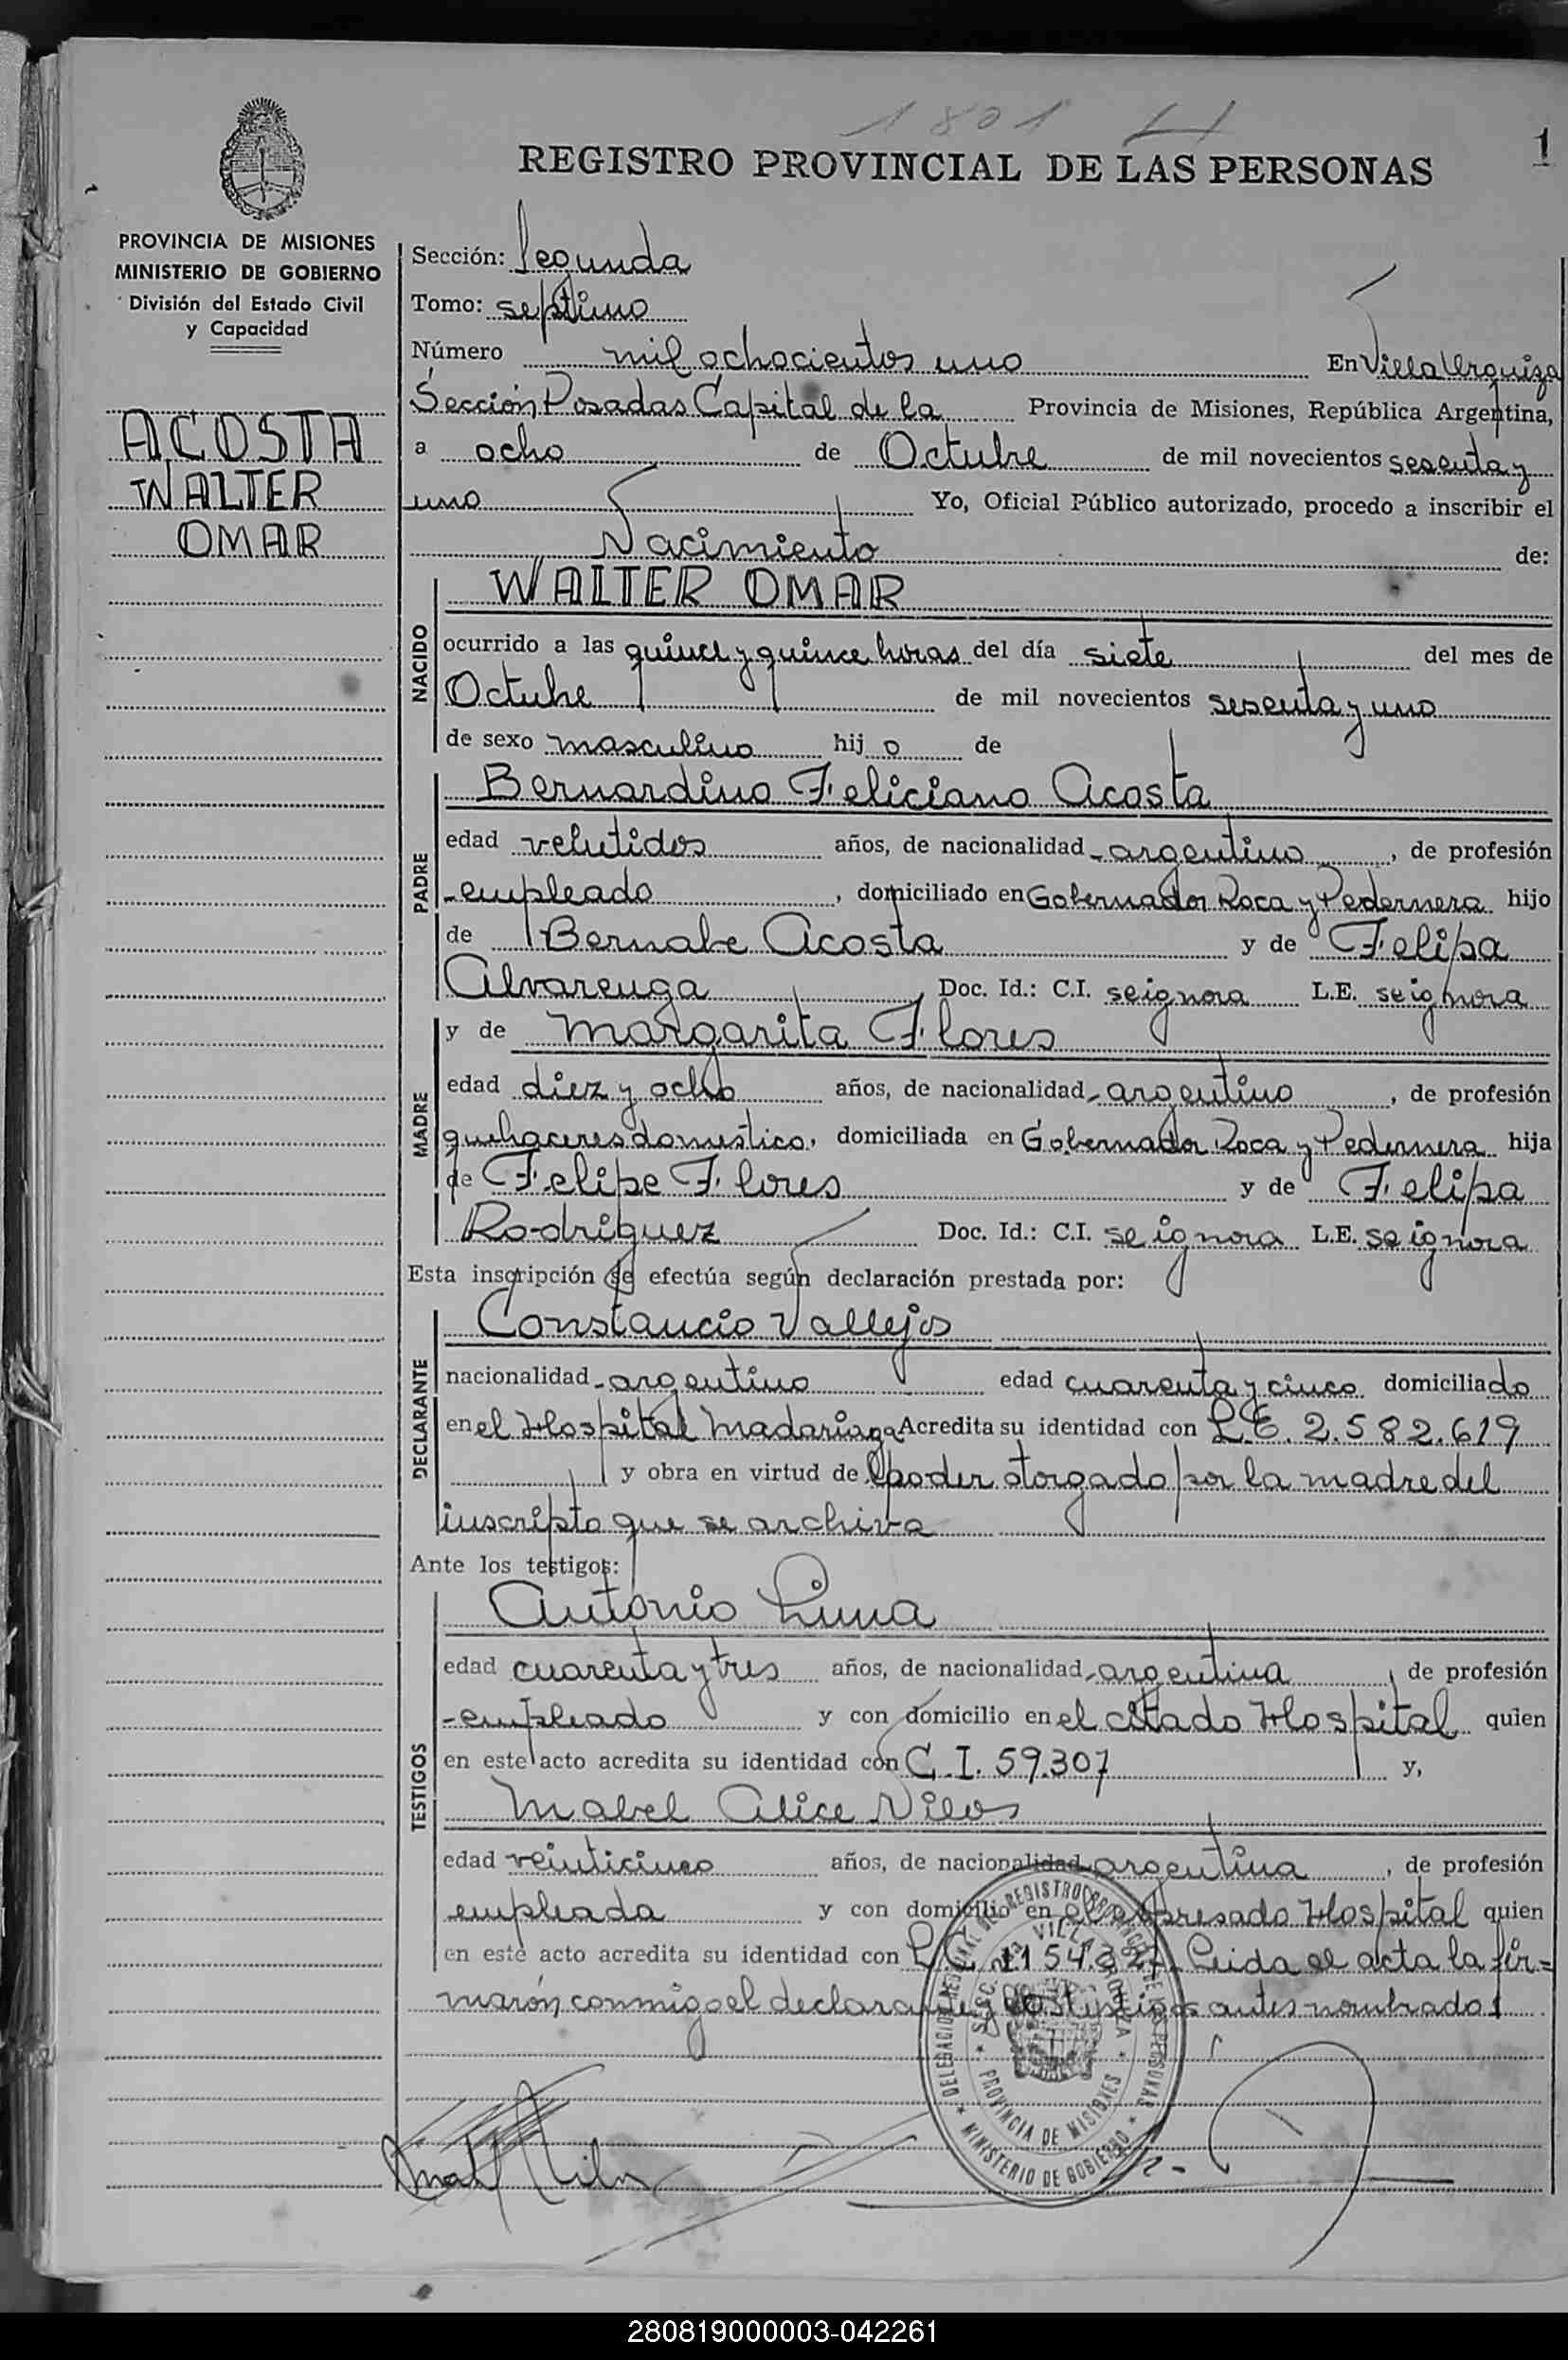 1801
REGISTRO PROVINCIAL DE LAS PERSONAS
1
PROVINCIA DE MISIONES
MINISTERIO DE GOBIERNO
División del Estado Civil
y Capacidad
ACOSTA
WALTER
OMAR
Sección: Segunda
Tomo: septimo
Número mil ochocientos uno En Villa Urquiza
Sección Posadas Capital de la Provincia de Misiones, República Argentina,
a ocho de Octubre de mil novecientos sesenta y
uno Yo, Oficial Público autorizado, procedo a inscribir el
Nacimiento de:
NACIDO
WALTER OMAR
ocurrido a las quince y quince horas del día siete del mes de
Octubre de mil novecientos sesenta y uno
de sexo masculino hijo de
PADRE
Bernardino Feliciano Acosta
edad veintidos años, de nacionalidad argentino, de profesión
empleado, domiciliado en Gobernador Roca y Pedernera hijo
de Bernabe Acosta y de Felipa
Alvarenga Doc. Id.: C.I. se ignora L.E. se ignora
MADRE
y de Margarita Flores
edad diez y ocho años, de nacionalidad argentino, de profesión
quehaceres domestico, domiciliada en Gobernador Roca y Pedernera hija
de Felipe Flores y de Felipa
Rodriguez Doc. Id.: C.I. se ignora L.E. se ignora
Esta inscripción se efectúa según declaración prestada por:
DECLARANTE
Constancio Vallejos
nacionalidad argentino edad cuarenta y cinco domiciliado
en el Hospital Madariaga Acredita su identidad con L.E. 2.582.619
y obra en virtud del poder otorgado por la madre del
inscripto que se archiva
Ante los testigos:
TESTIGOS
Antonio Luna
edad cuarenta y tres años, de nacionalidad argentina, de profesión
empleado y con domicilio en el citado Hospital quien
en este acto acredita su identidad con C.I. 59.307 y,
Mabel Alice Nilos
edad veinticinco años, de nacionalidad argentina, de profesión
empleada y con domicilio en el expresado Hospital quien
en este acto acredita su identidad con Leida el acta la fir=
marón conmigo el declarante y los testigos antes nombrados
DELEGACION REGIONAL DEL REGISTRO PROVINCIAL DE LAS PERSONAS
VILLA URQUIZA
PROVINCIA DE MISIONES
MINISTERIO DE GOBIERNO
280819000003-042261